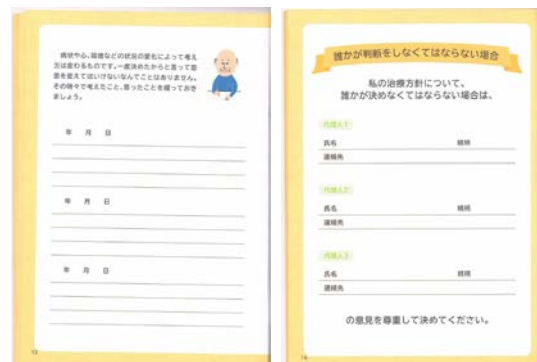 病状や心、環境などの状況の変化によって考え
方は変わるものです。一度決めたからと言って意
思を変えてはいけないなんてことはありません。
その時々で考えたこと、思ったことを綴っておき
ましょう。
年 月 日
年 月 日
年 月 日
誰かが判断をしなくてはならない場合
私の治療方針について、
誰かが決めなくてはならない場合は、
代理人1
氏名 続柄
連絡先
代理人2
氏名 続柄
連絡先
代理人3
氏名 続柄
連絡先
の意見を尊重して決めてください。